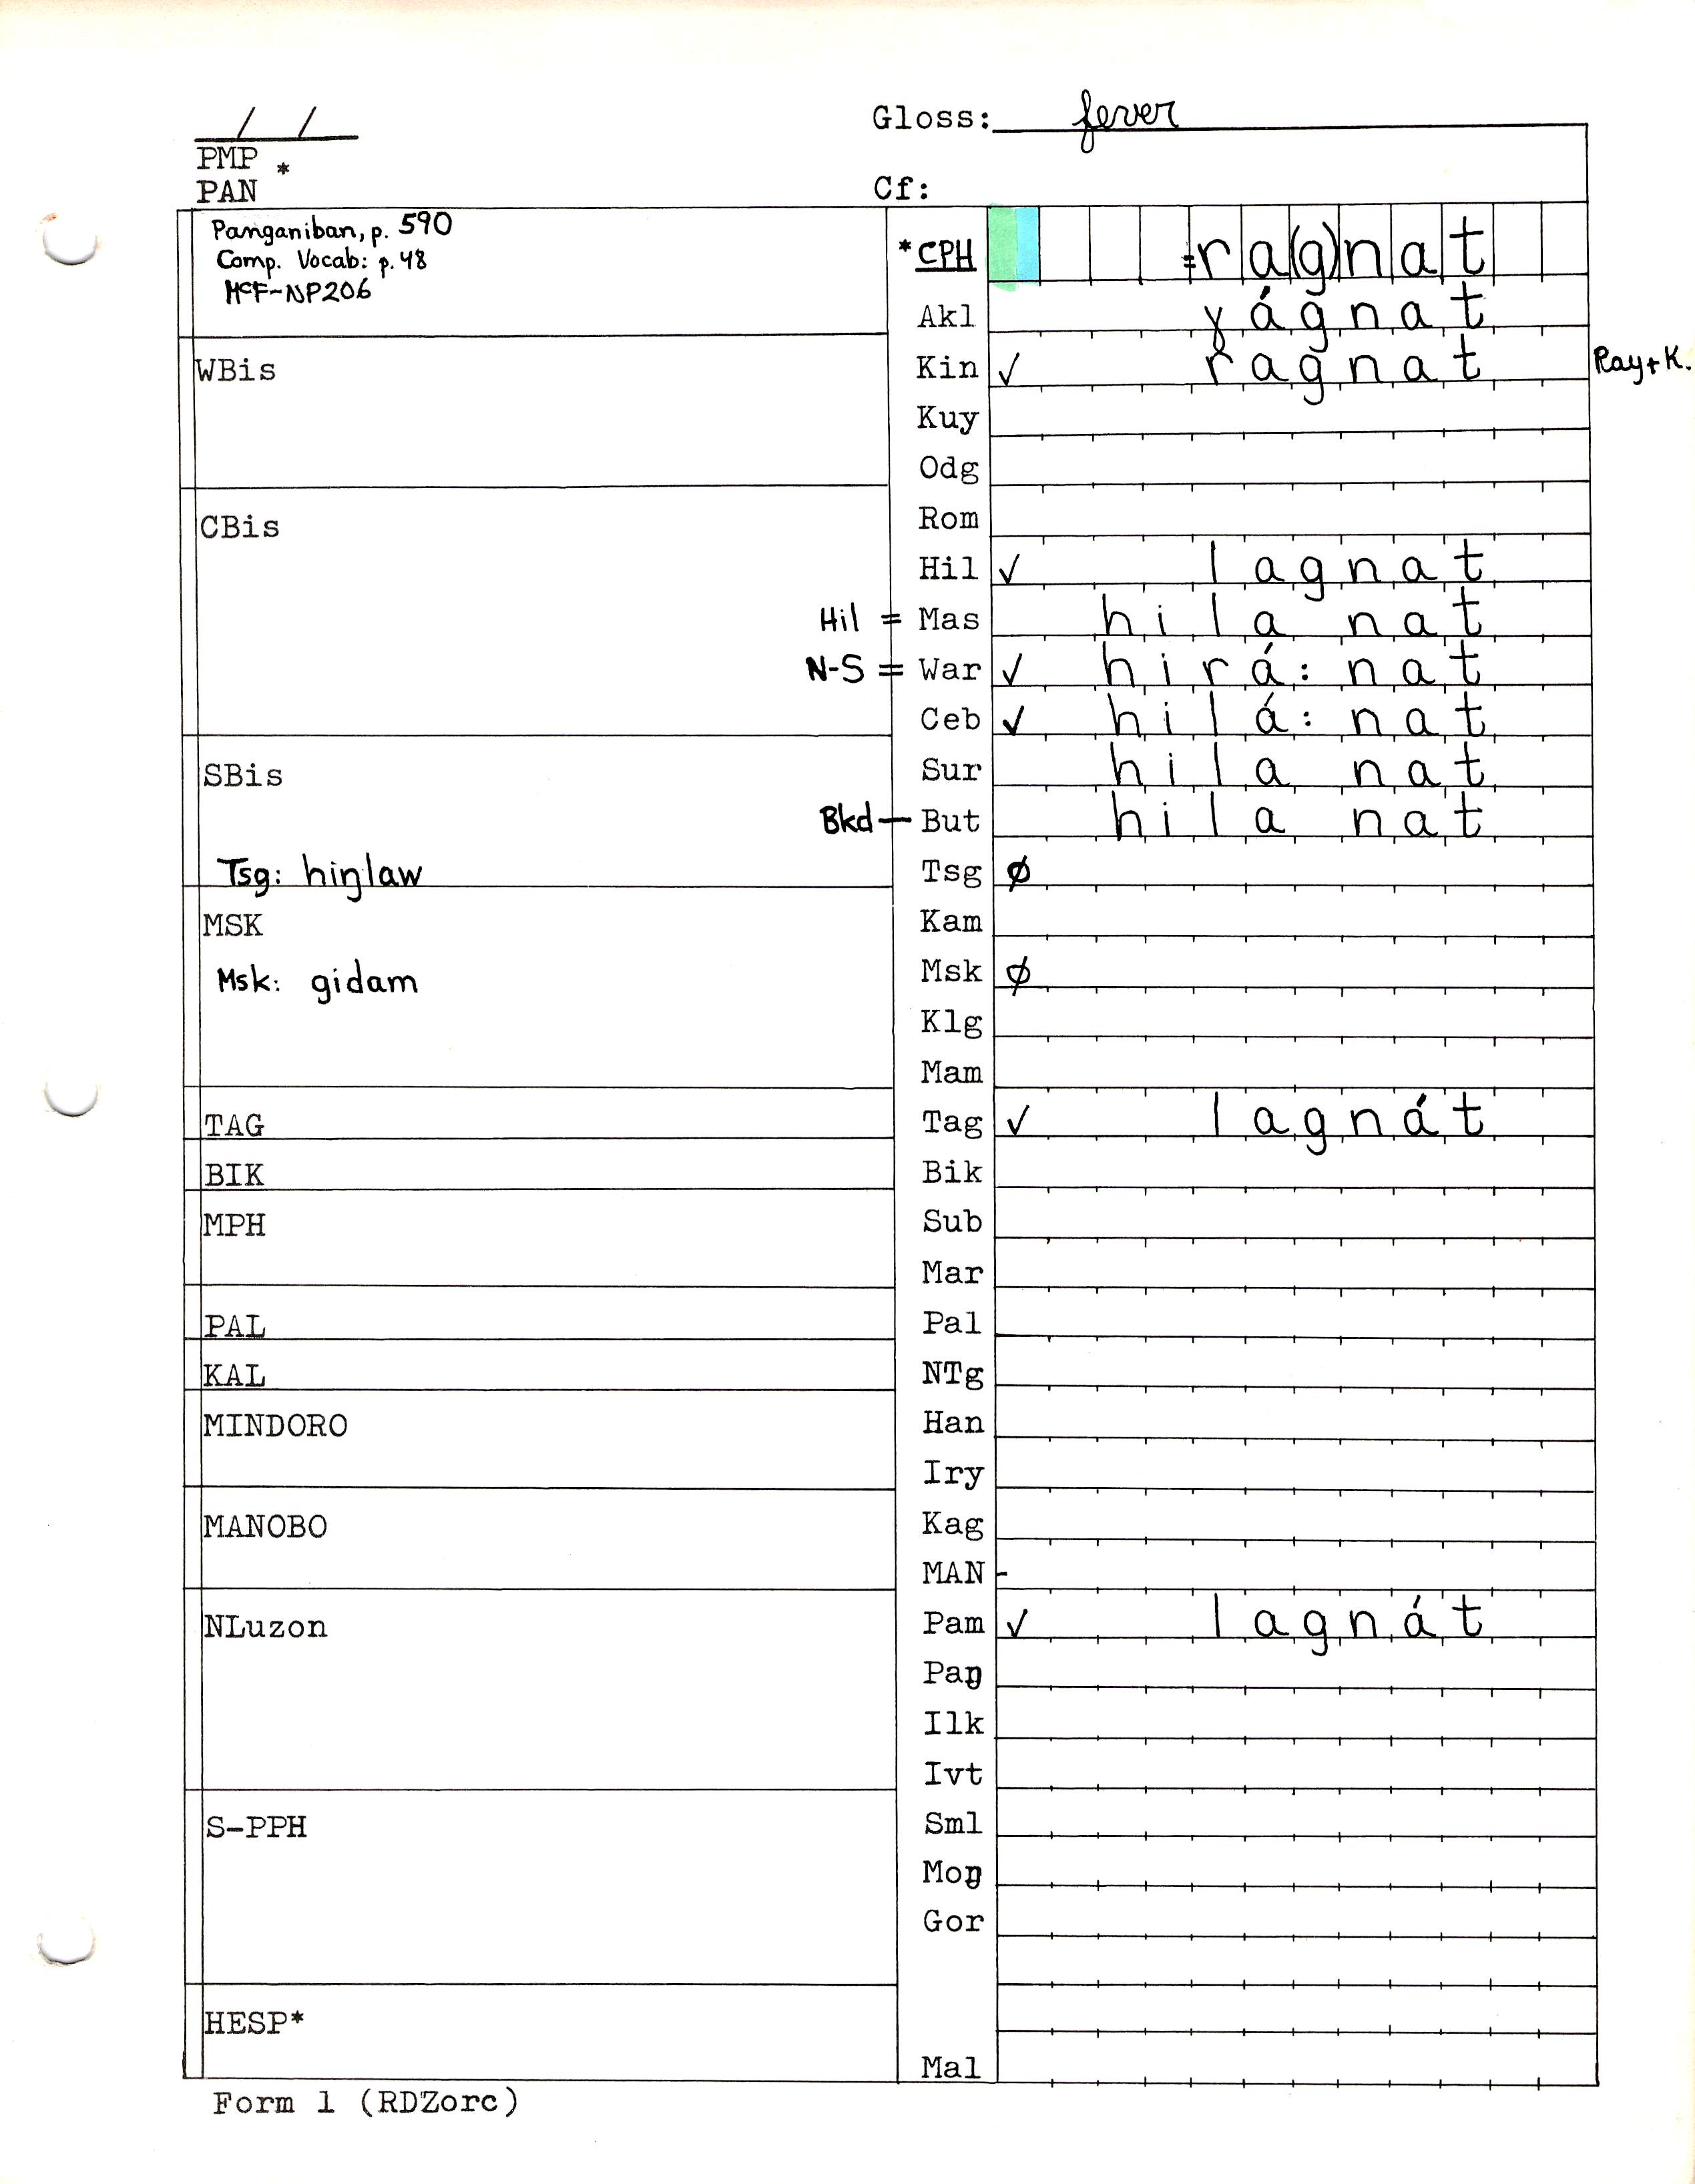 / /
Gloss: fever
PMP *
PAN
Cf:
Panganiban, p. 590
Comp. Vocab: p. 48
McF-NP206
*CPH =ra(g)nat
Akl ɣágnat
WBis
Kin ✓ ragnat Ray+K.
Kuy
Odg
CBis
Rom
Hil ✓ lagnat
Hil = Mas hila nat
N-S = War ✓ hirá: nat
Ceb ✓ hilá: nat
SBis
Sur hila nat
Bkd — But hila nat
Tsg: hiŋlaw
Tsg ∅
MSK
Kam
Msk: gidam
Msk ∅
Klg
Mam
TAG
Tag ✓ lagnát
BIK
Bik
MPH
Sub
Mar
PAL
Pal
KAL
NTg
MINDORO
Han
Iry
MANOBO
Kag
MAN -
NLuzon
Pam ✓ lagnát
Paŋ
Ilk
Ivt
S-PPH
Sml
Moŋ
Gor
HESP*
Mal
Form 1 (RDZorc)